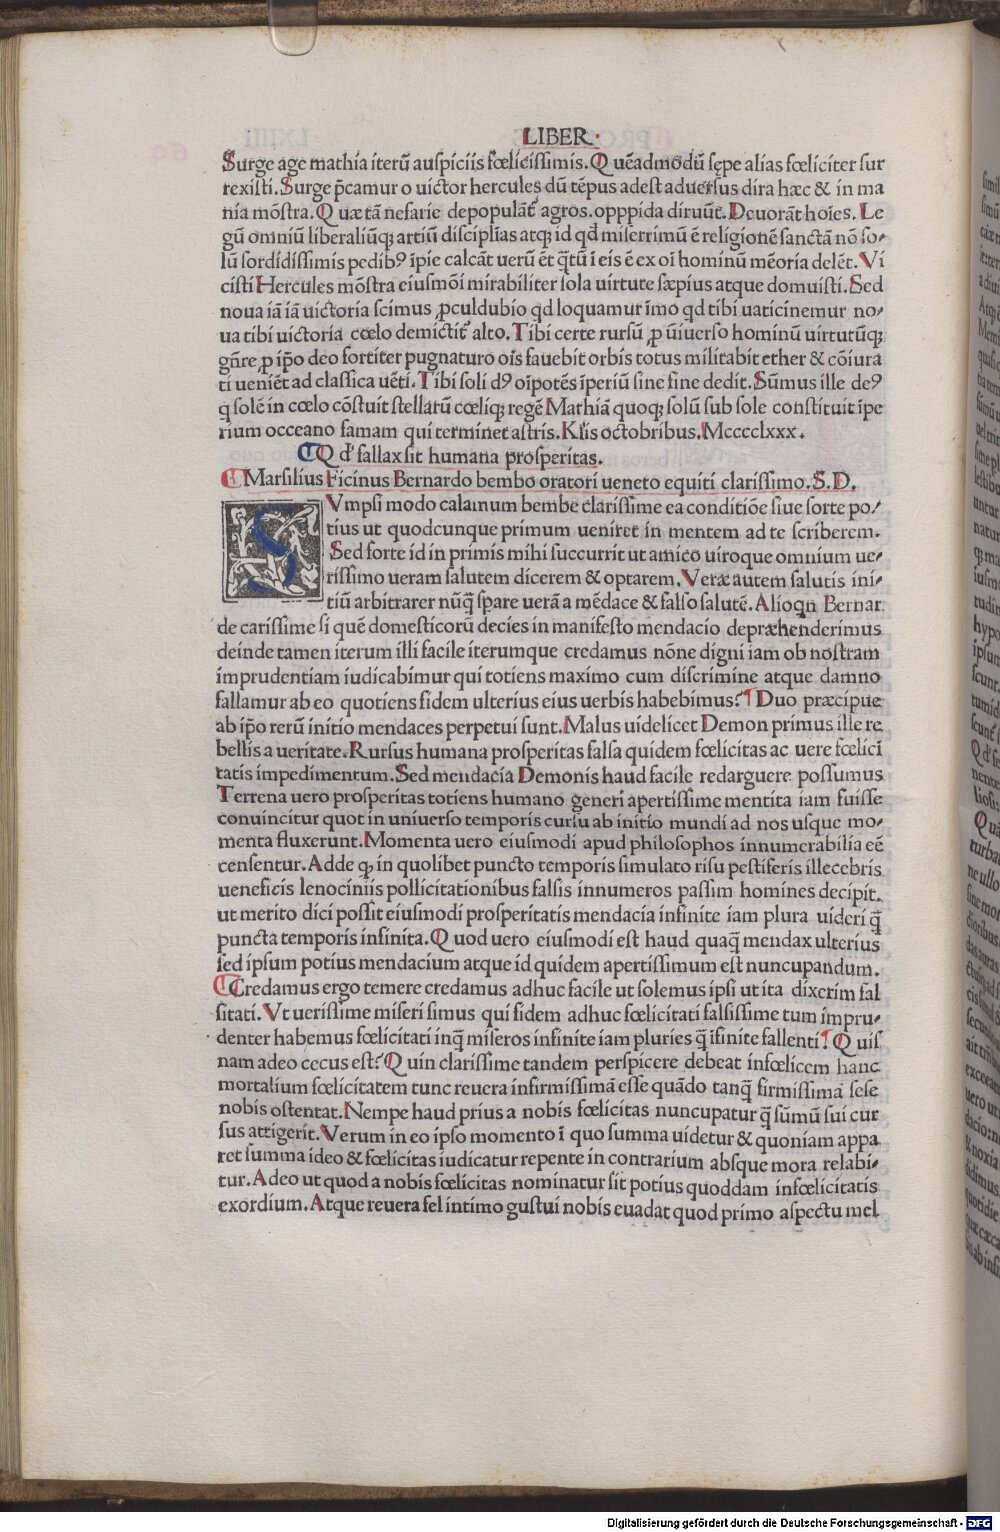 LIBER
Surge age mathia iterū auspiciis fœlicissimis. Quēadmodū sępe alias fœliciter sur
rexisti. Surge p̄camur o uictor hercules dū tēpus adest aduersus dira hæc & in ma
nia mōstra. Quæ tā nefarie depopulāt᷒ agros. opppida diruūt. Deuorāt hoīes. Le
gū omniū liberaliūꝗ artiū disciplīas atꝗ id qd̄ miserrimū ē religionē sanctā nō so⸗
lū sordidissimis pedibꝰ īpie calcāt uerū ēt ꝗ̄tū ī eis ē ex oī hominū mēoria delēt. Vi
cisti Hercules mōstra eiusmōi mirabiliter sola uirtute sæpius atque domuisti. Sed
noua iā iā uictoria scimus ꝓculdubio qd loquamur īmo qd tibi uaticinemur no⸗
ua tibi uictoria cœlo demictit᷒ alto. Tibi certe rursū ꝓ ūiuerso hominū uirtutūꝗ
gn̄re ꝓ ip̄o deo fortiter pugnaturo oīs fauebit orbis totus militabit ether & cōiura
ti ueniēt ad classica uēti. Tibi soli dꝰ oīpotēs īperiū sine fine dedit. Sūmus ille deꝰ
q solē in cœlo cōstuit stellarū cœliꝗ regē Mathiā quoꝗ solū sub sole constituit īpe
rium occeano famam qui terminet astris. Kl̄is octobribus. Mcccclxxx.
Qd᷒ fallax sit humana prosperitas.
Marsilius Ficinus Bernardo bembo oratori ueneto equiti clarissimo. S. D.
SVmpsi modo calamum bembe clarissime ea conditiōe siue sorte po⸗
tius ut quodcunque primum ueniret in mentem ad te scriberem.
Sed forte id in primis mihi succurrit ut amico uiroque omnium ue⸗
rissimo ueram salutem dicerem & optarem. Veræ autem salutis ini⸗
tiū arbitrarer nūꝗ̄ sp̄are uerā a mēdace & falso salutē. Alioqn Bernar
de carissime si quē domesticorū decies in manifesto mendacio depræhenderimus
deinde tamen iterum illi facile iterumque credamus nōne digni iam ob nostram
imprudentiam iudicabimur qui totiens maximo cum discrimine atque damno
fallamur ab eo quotiens fidem ulterius eius uerbis habebimus? Duo præcipue
ab ip̄o rerū initio mendaces perpetui sunt. Malus uidelicet Demon primus ille re
bellis a ueritate. Rursus humana prosperitas falsa quidem fœlicitas ac uere fœlici
tatis impedimentum. Sed mendacia Demonis haud facile redarguere possumus
Terrena uero prosperitas totiens humano generi apertissime mentita iam fuisse
conuincitur quot in uniuerso temporis cursu ab initio mundi ad nos usque mo⸗
menta fluxerunt. Momenta uero eiusmodi apud philosophos innumerabilia eē
censentur. Adde ꝙ in quolibet puncto temporis simulato risu pestiferis illecebris
ueneficis lenociniis pollicitationibus falsis innumeros passim homines decipit.
ut merito dici possit eiusmodi prosperitatis mendacia infinite iam plura uideri ꝗ̄
puncta temporis infinita. Quod uero eiusmodi est haud quaꝗ̄ mendax ulterius
sed ipsum potius mendacium atque id quidem apertissimum est nuncupandum.
Credamus ergo temere credamus adhuc facile ut solemus ipsi ut ita dixerim fal
sitati. Vt uerissime miseri simus qui fidem adhuc fœlicitati falsissime tum impru⸗
denter habemus fœlicitati inꝗ̄ miseros infinite iam pluries ꝗ̄ īfinite fallenti? Quis
nam adeo cecus est? Quin clarissime tandem perspicere debeat infœlicem hanc
mortalium fœlicitatem tunc reuera infirmissimā esse quādo tanꝗ̄ firmissimā sese
nobis ostentat. Nempe haud prius a nobis fœlicitas nuncupatur ꝗ̄ sūmū sui cur
sus attigerit. Verum in eo ipso momento ī quo summa uidetur & quoniam appa
ret summa ideo & fœlicitas iudicatur repente in contrarium absque mora relabi⸗
tur. Adeo ut quod a nobis fœlicitas nominatur sit potius quoddam infœlicitatis
exordium. Atque reuera fel intimo gustui nobis euadat quod primo aspectu mel
Digitalisierung gefördert durch die Deutsche Forschungsgemeinschaft - DFG